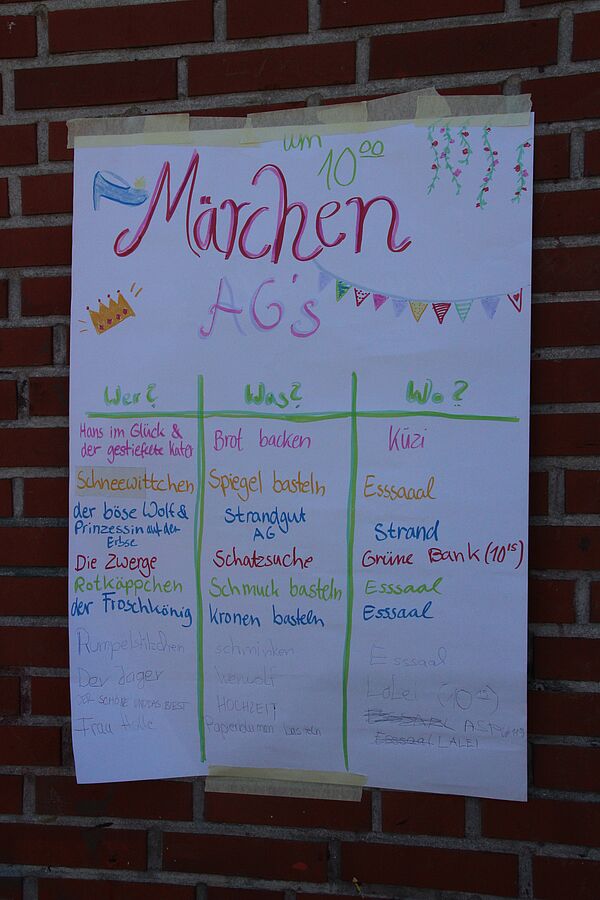 um
10⁰⁰
Märchen
AG's
Wer? Was? Wo?
Hans im Glück & der gestiefelte Kater Brot backen Küzi
Schneewittchen Spiegel basteln Esssaaal
der böse Wolf & Prinzessin auf der Erbse Strandgut AG Strand
Die Zwerge Schatzsuche Grüne Bank (10¹⁵)
Rotkäppchen Schmuck basteln Esssaal
der Froschkönig Kronen basteln Esssaal
Rumpelstilzchen schminken Esssaal
Der Jäger Werwolf LaLei
DER SCHÖNE UND DAS BIEST HOCHZEIT
Frau Holle Papierblumen basteln Esssaal LALEI